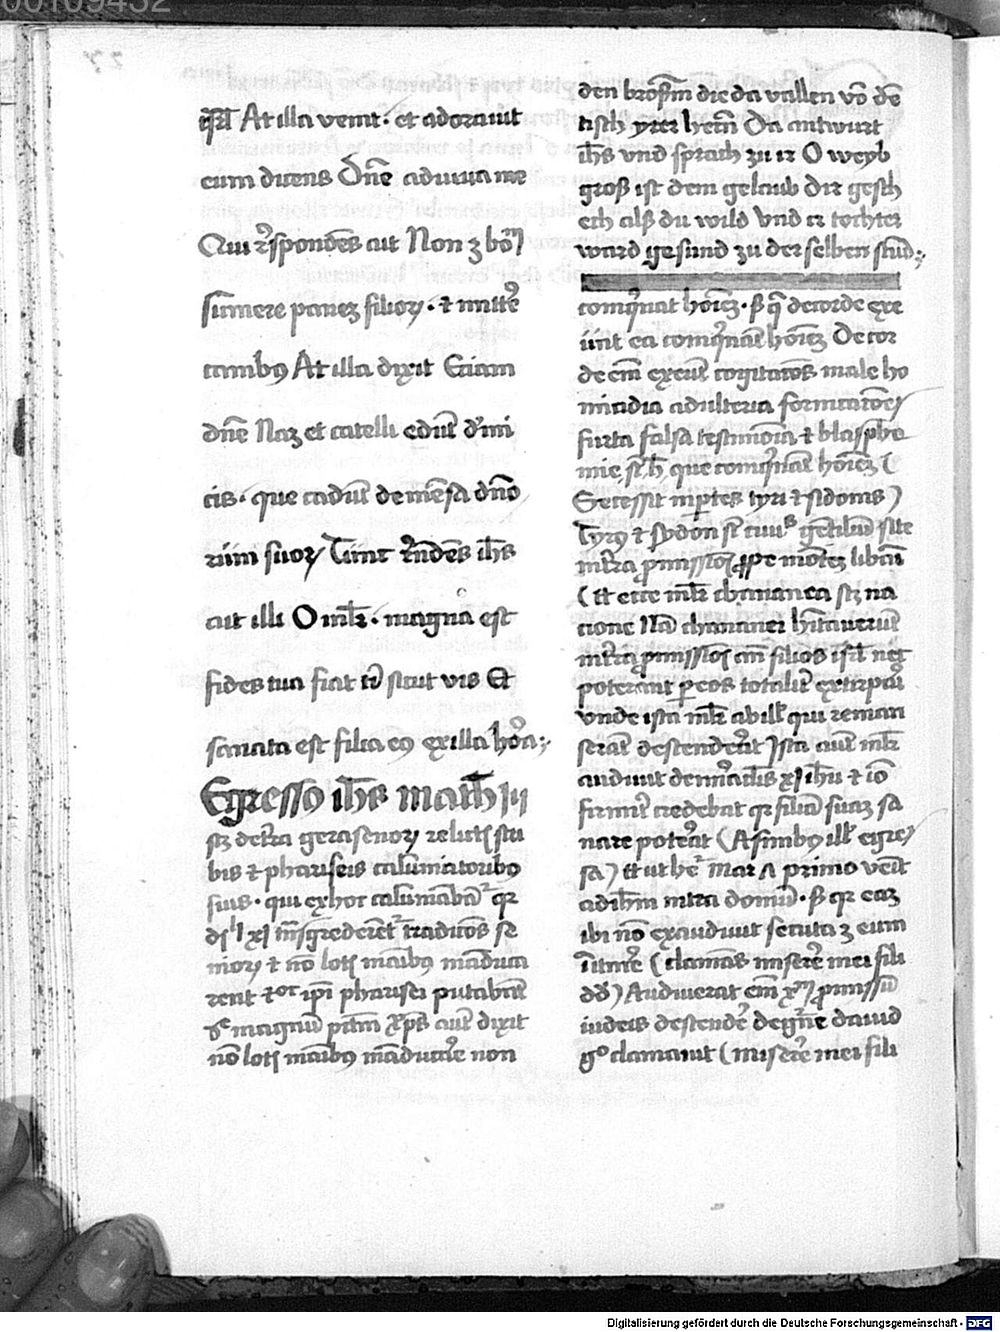 00109432
isrl At illa venit · et adorauit
eum dicens Dñe adiuua me
Qui rñspondēs ait Non ē bonū
sumere panē filiorꝝ · et mittere
canibꝯ At illa dixit Eciam
dñe Nam et catelli edūt de mi
cis · que cadūt de mēsa dño
rum suorꝝ Tunc rñdēs ihs
ait illi O mlr · magna est
fides tua fiat tibi sicut vis Et
sanata est filia eꝯ ex illa hora ;
Egressꝯ ihs math
scꝫ de terra gerasenorꝝ relictis scri
bis et phariseis calūniatoribꝯ
suis · qui ex hoc calūniabātur qꝛ
transgrederētur tradicōes se
niorꝝ et nō lotis manibꝯ māduca
rent
magnū pctm xps autē dixit
nō lotis manibꝯ māducare non
den brosem die da vallen vō dē
tisch yrer herrn Da antwurt
ihs vnd sprach zu ir O weyb
groß ist dem gelaub dir gesch
ech alß du wild Vnd ir tochter
ward gesund zu der selben stūd ;
coinqnat hoīeꝫ · sꝫ q̄ de corde exe
unt ea coinqnāt hoīeꝫ De cor
de em̄ exeūt cogitatōes male ho
micidia adulteria fornicatōes
furta falsa testimoīa et blasphe
mie que coinqnāt hoīeꝫ (
Secessit in ptes tyri et sidonis )
Tyrꝯ et sydon st ciuitates gētiliū site
in terra promissiōis prope mōteꝫ libani
( Et ecce mlr chananea scꝫ na
cione Nā chananei hītauerūt
in terra promissiōis cum filios isrl nec
poterant per eos totalit extirpari
vnde ista mlr ab illis qui reman
serāt descenderat Ista autē mlr
audiuit de miraclis xpi ihu et iō
firmit credebat qꝛ filiā suaꝫ sa
nare poterat ( A finibꝯ illis egres
sa ) Et ut hr Mar primo venit
ad ihm intra domū · sꝫ qꝛ eaꝫ
ibi nō exaudiuit secuta ē eum
in itinere ( clamās miserere mei fili
dd ) Audiuerat em̄ xpm promissū
iudeis descendere de genere dauid
gº clamauit ( miserere mei fili
Digitalisierung gefördert durch die Deutsche Forschungsgemeinschaft - DFG